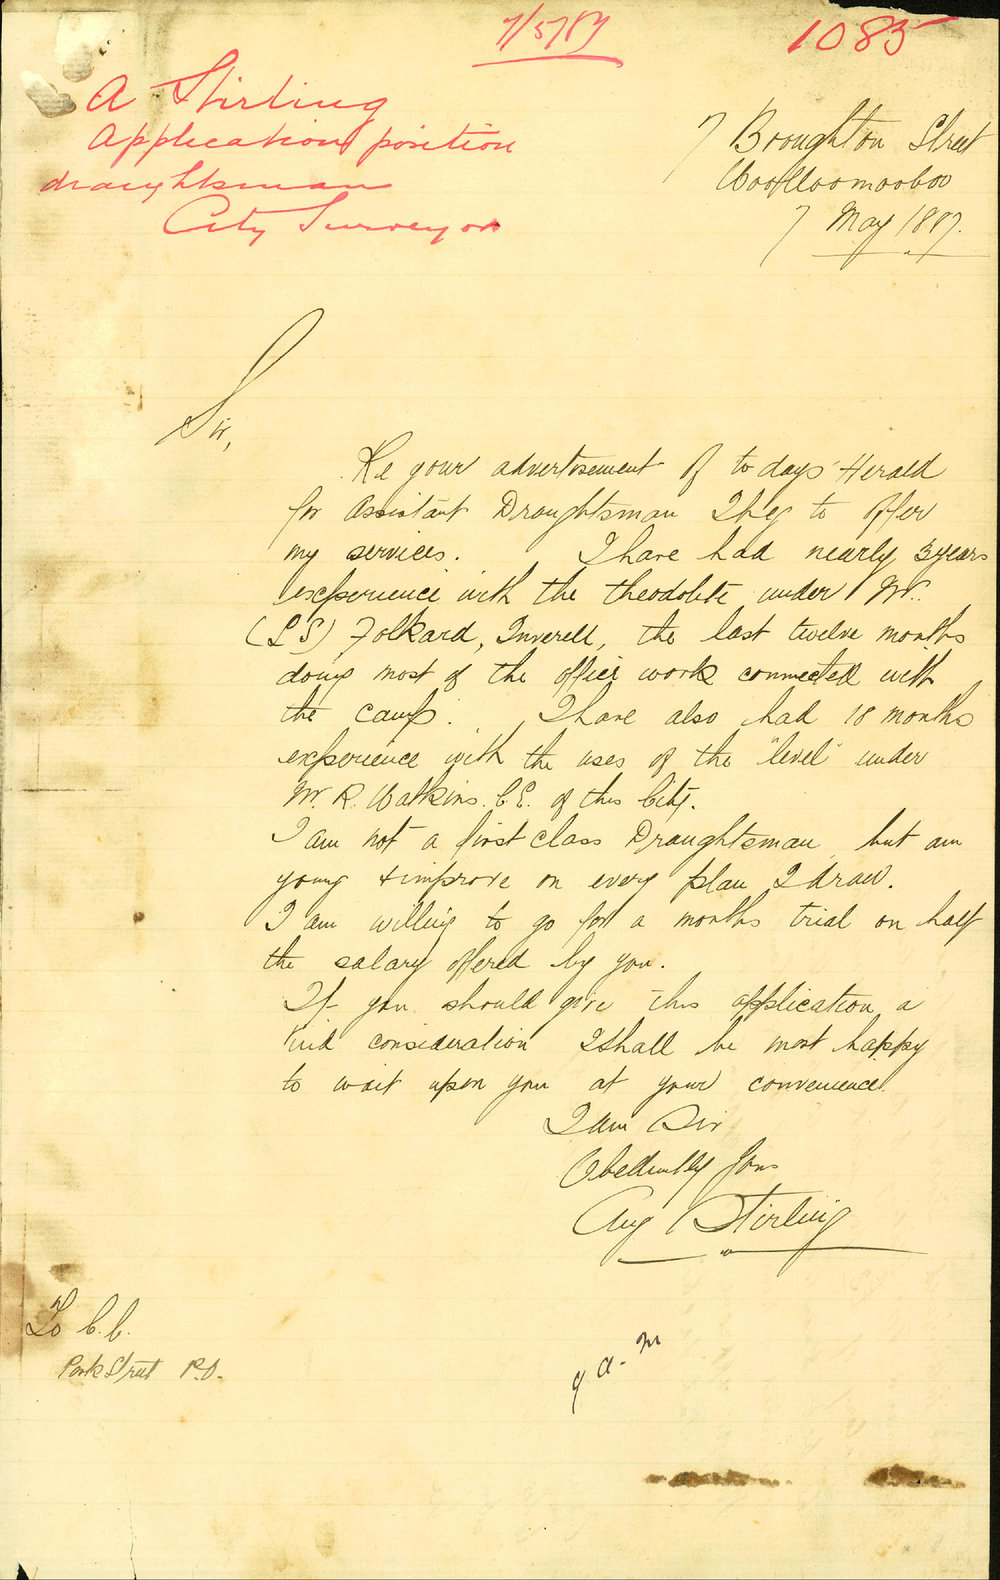 7/5/87
1085
A Stirling
Application position
draughtsman
City Surveyor
7 Broughton Street
Woolloomooloo
7 May 1887.
Sir,
Re your advertisement of to days Herald
for Assistant Draughtsman I beg to offer
my services. I have had nearly 3 years
experience with the theodolite under Mr.
(LS) Folkard, Inverell, the last twelve months
doing most of the office work connected with
the camp. I have also had 18 months
experience with the uses of the "level" under
Mr. R. Watkins. C.E. of this City.
I am not a first class Draughtsman but am
young & improve on every plan I draw.
I am willing to go for a months trial on half
the salary offered by you.
If you should give this application a
kind consideration I shall be most happy
to wait upon you at your convenience.
I am Sir
Obediently Yours
Aug Stirling
To C.C.
Park Street P.O.
9 a.m